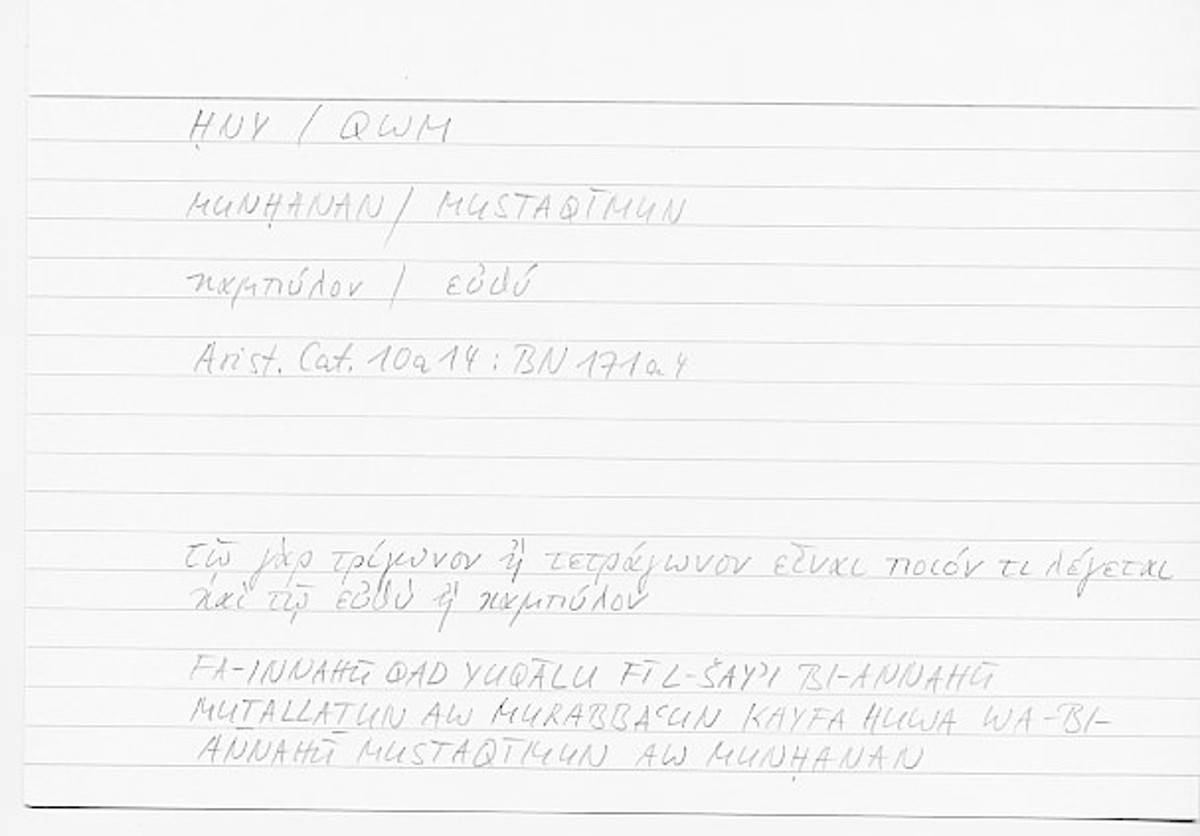 ḤNY / QWM
MUNḤANAN / MUSTAQĪMUN
καμπύλον / εὐθύ
Arist. Cat. 10a14 : BN 171a4
τῷ γὰρ τρίγωνον ἢ τετράγωνον εἶναι ποιόν τι λέγεται
καὶ τῷ εὐθὺ ἢ καμπύλον
FA-INNAHŪ QAD YUQĀLU FĪ L-ŠAYʾI BI-ANNAHŪ
MUṮALLAṮUN AW MURABBAʿUN KAYFA HUWA WA-BI-
ANNAHŪ MUSTAQĪMUN AW MUNḤANAN